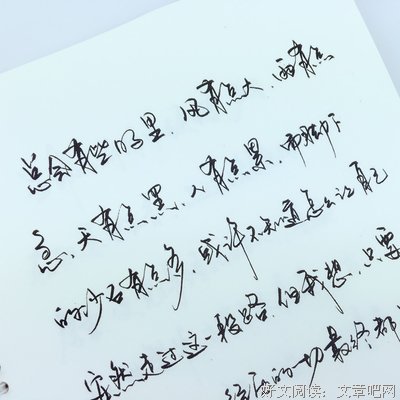 总会有些时里,风有点大,雨有点
急,天有点黑,人有点累,而脚下
的沙石有点多,或许不知道怎么让自己
安然走过这一段路,但我想,只要
的一切最终都
好文阅读:文章吧网